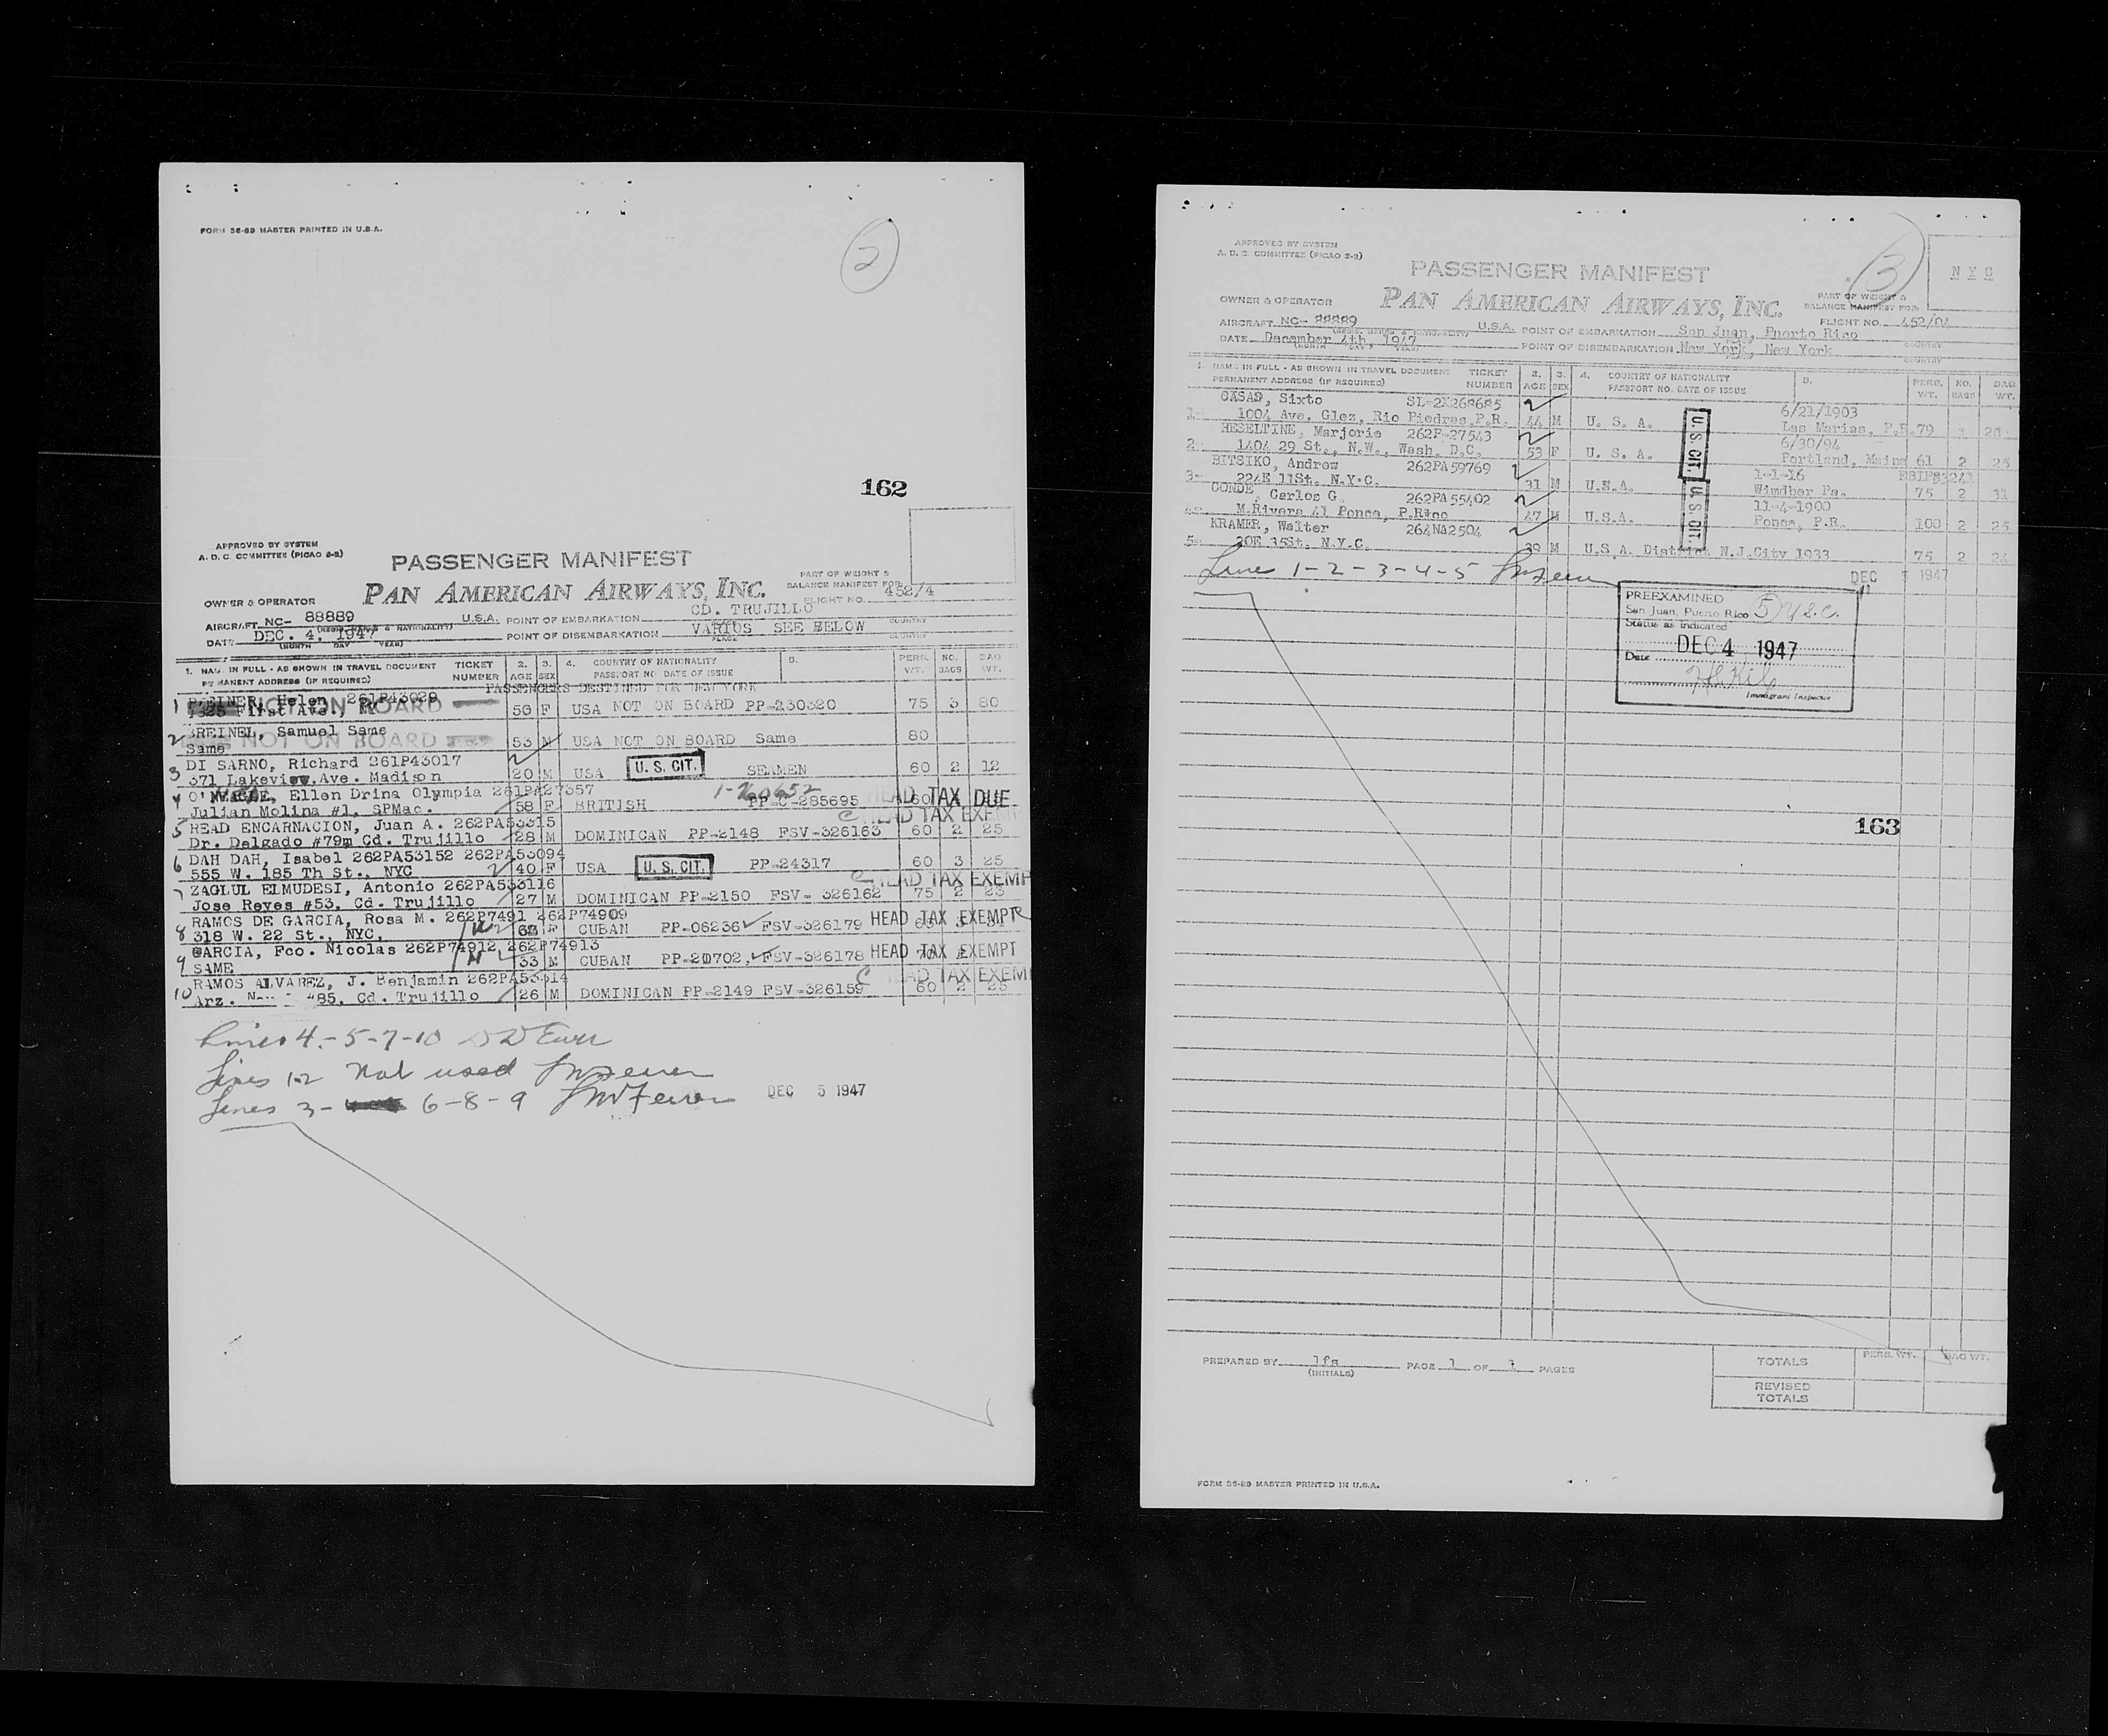 FORM 36-89 MASTER PRINTED IN U.S.A.
2
162
APPROVED BY SYSTEM
A. D. C. COMMITTEE (PICAO 2-2)
PASSENGER MANIFEST
PAN AMERICAN AIRWAYS, INC.
PART OF WEIGHT &
BALANCE MANIFEST FOR:
FLIGHT NO. 452/4
OWNER & OPERATOR
CD. TRUJILLO
AIRCRAFT NC- 88889 U.S.A. POINT OF EMBARKATION
(REGIS. MARKS & NATIONALITY) COUNTRY
DATE DEC. 4, 1947 POINT OF DISEMBARKATION VARIOS SEE BELOW
(MONTH DAY YEAR) PLACE COUNTRY
1. NAME IN FULL - AS SHOWN IN TRAVEL DOCUMENT TICKET 2. 3. 4. COUNTRY OF NATIONALITY 5. PERS. NO. BAG
PERMANENT ADDRESS (IF REQUIRED) NUMBER AGE SEX PASSPORT NO. DATE OF ISSUE WT. BAGS WT.
PASSENGERS DESTINED FOR NEW YORK
1 Helen 261P43029
First Ave., NOT ON BOARD 50 F USA NOT ON BOARD PP-230320 75 3 80
2 BREINEL, Samuel Same
Same NOT ON BOARD 53 M USA NOT ON BOARD Same 80
3 DI SARNO, Richard 261P43017
371 Lakeview Ave. Madison 20 M USA U. S. CIT. SEAMEN 60 2 12
4 Ellen Drina Olympia 261PA27357
Julian Molina #1, SPMac. 58 F BRITISH PP-C-285695 60 HEAD TAX DUE
5 READ ENCARNACION, Juan A. 262PA53315 HEAD TAX EXEMP
Dr. Delgado #79m Cd. Trujillo 28 M DOMINICAN PP-2148 FSV-326163 60 2 25
6 DAH DAH, Isabel 262PA53152 262PA53094
555 W. 185 Th St., NYC 40 F USA U. S. CIT. PP-24317 60 3 25
7 ZAGLUL ELMUDESI, Antonio 262PA533116 HEAD TAX EXEMP
Jose Reyes #53, Cd. Trujillo 27 M DOMINICAN PP-2150 FSV- 326162 75 2 23
8 RAMOS DE GARCIA, Rosa M. 262P7491 262P74909
318 W. 22 St., NYC, 68 F CUBAN PP-06236 FSV-326179 HEAD TAX EXEMPT
9 GARCIA, Fco. Nicolas 262P74912 262P74913
SAME 33 M CUBAN PP-20702, FSV-326178 HEAD TAX EXEMPT
10 RAMOS ALVAREZ, J. Benjamin 262PA53114 HEAD TAX EXEM
Arz. #85, Cd. Trujillo 26 M DOMINICAN PP-2149 FSV-326159 60 2 25
Lines 4-5-7-10
Lines 1-2 Not used
Lines 3- 6-8-9 DEC 5 1947
APPROVED BY SYSTEM
A. D. C. COMMITTEE (PICAO 2-2)
PASSENGER MANIFEST
3
N Y C
PAN AMERICAN AIRWAYS, INC.
PART OF WEIGHT &
BALANCE MANIFEST FOR:
OWNER & OPERATOR
FLIGHT NO. 452/04
AIRCRAFT NC- 88889 U.S.A. POINT OF EMBARKATION San Juan, Puerto Rico
(REGIS. MARKS & NATIONALITY) COUNTRY
DATE December 4th, 1947 POINT OF DISEMBARKATION New York, New York
(MONTH DAY YEAR) COUNTRY
1. NAME IN FULL - AS SHOWN IN TRAVEL DOCUMENT TICKET 2. 3. 4. COUNTRY OF NATIONALITY 5. PERS. NO. BAG
PERMANENT ADDRESS (IF REQUIRED) NUMBER AGE SEX PASSPORT NO. DATE OF ISSUE WT. BAGS WT.
CASAS, Sixto SL-2X268685 6/21/1903
1- 1004 Ave. Glez, Rio Piedras, P.R. 44 M U. S. A. Las Marias, P.R. 79 - 20
HESELTINE, Marjorie 262P-27543 6/30/94
2- 1404 29 St., N.W., Wash. D.C. 53 F U. S. A. Portland, Maine 61 2 25
BITSIKO, Andrew 262PA59769 1-1-16
3- 224E 11St. N.Y.C. 31 M U.S.A. Windber Pa. 75 2 31
CONDE, Carlos G. 262PA55402 11-4-1900
4- M.Rivera 41 Ponce, P.Rico 47 M U.S.A. Ponce, P.R. 100 2 25
KRAMER, Walter 264NA2504
5- 20E 35St. N.Y.C. 39 M U.S.A. District N.J.City 1933 75 2 24
U. S. CIT.
U. S. CIT.
Lines 1-2-3-4-5
DEC 5 1947
PREEXAMINED
San Juan, Puerto Rico 5 U.S.C.
Status as indicated
Date DEC 4 1947
Immigrant Inspector
163
PREPARED BY lfs PAGE 1 OF 1 PAGES
(INITIALS)
TOTALS PERS. WT. BAG WT.
REVISED
TOTALS
FORM 36-89 MASTER PRINTED IN U.S.A.